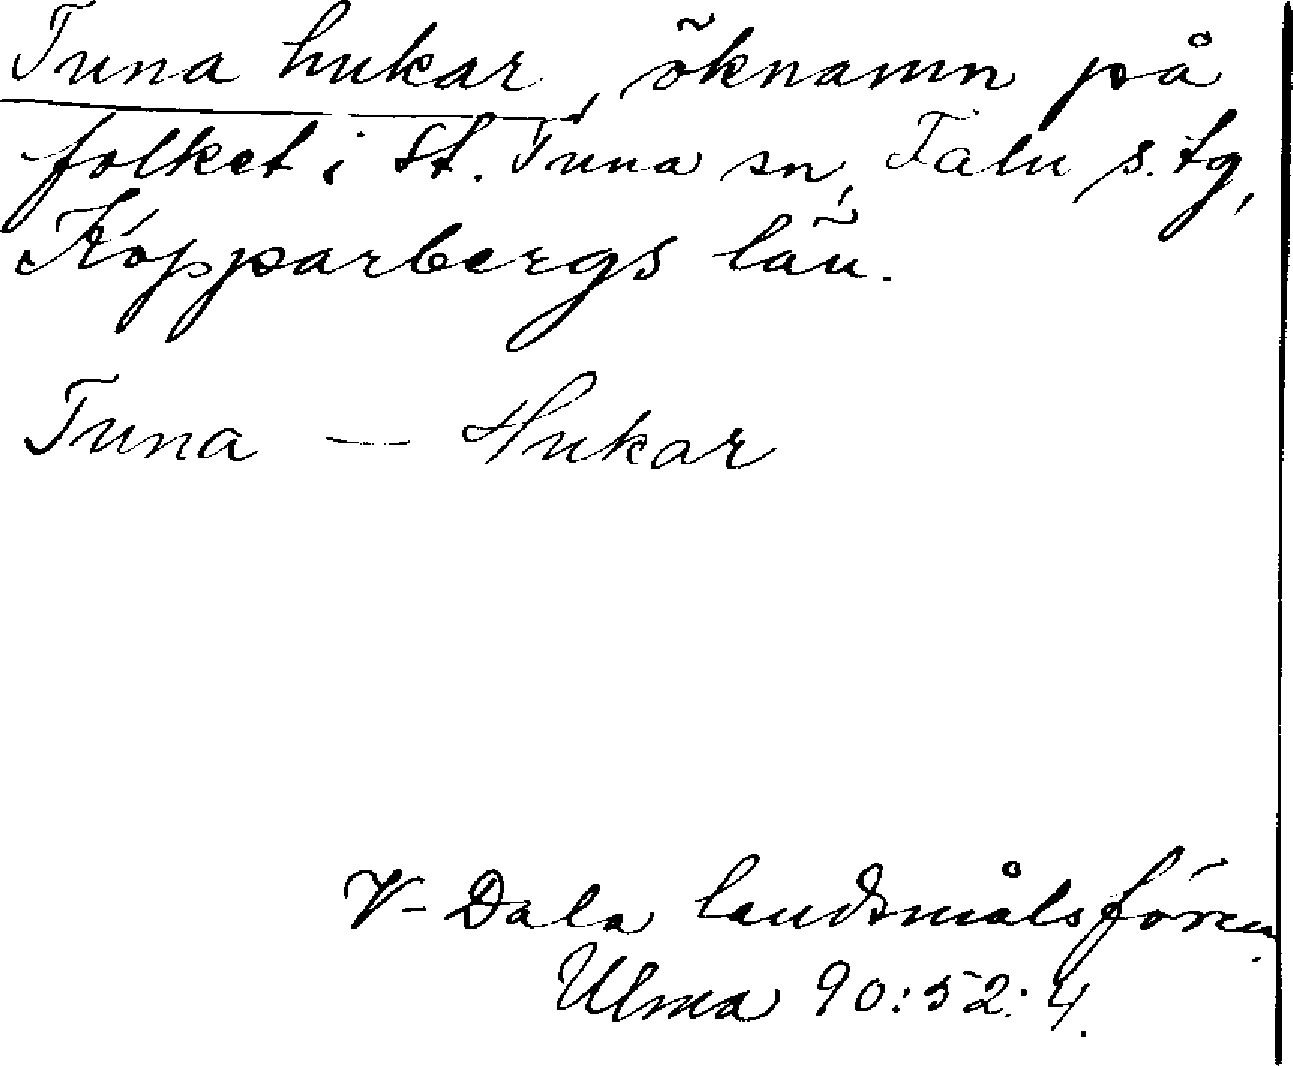 Tuna hukar, öknamn på
folket i St. Tuna sn, Falu s. tg,
Kopparbergs län.
Tuna — Hukar
V-Dala landsmålsfören.
Ulma 90:52:4.